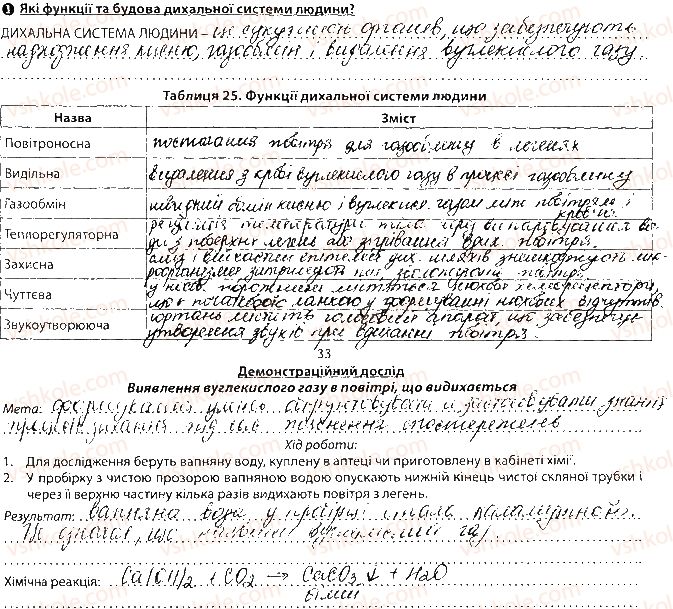 1 Які функції та будова дихальної системи людини?
ДИХАЛЬНА СИСТЕМА ЛЮДИНИ – це сукупність органів, що забезпечують
надходження кисню, газообмін і видалення вуглекислого газу.
Таблиця 25. Функції дихальної системи людини
Назва Зміст
Повітроносна постачання повітря для газообміну в легенях
Видільна видалення з крові вуглекислого газу в процесі газообміну
Газообмін швидкий обмін кисню і вуглекисл. газом між повітрям і кров'ю.
Теплорегуляторна регуляція температури тіла при випаровування води з поверхні легень або зігрівання повітря.
Захисна слиз і війчастий епітелій дих. шляхів знешкоджують мікроорганізми, затримують пил, зволожують повітря
Чуттєва у носов. порожнині містяться нюхові хеморецептори, що є початковою ланкою у формуванні нюхових відчуттів
Звукоутворююча гортань містить голосовий апарат, що забезпечує утворення звуків при вдиханні повітря
33
Демонстраційний дослід
Виявлення вуглекислого газу в повітрі, що видихається
Мета: формування умінь обґрунтовувати й застосовувати знання
про під час пояснення спостережень
Хід роботи:
1. Для дослідження беруть вапняну воду, куплену в аптеці чи приготовлену в кабінеті хімії.
2. У пробірку з чистою прозорою вапняною водою опускають нижній кінець чистої скляної трубки і
через її верхню частину кілька разів видихають повітря з легень.
Результат: вапняна вода у пробірці стала каламутною.
Це означає, що вуглекислий газ.
Хімічна реакція: Ca(OH)2 + CO2 → CaCO3↓ + H2O
білий